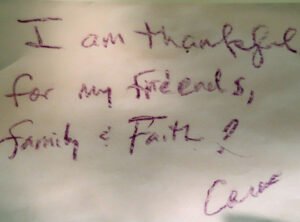 I am thankful
for my friends,
family & Faith!